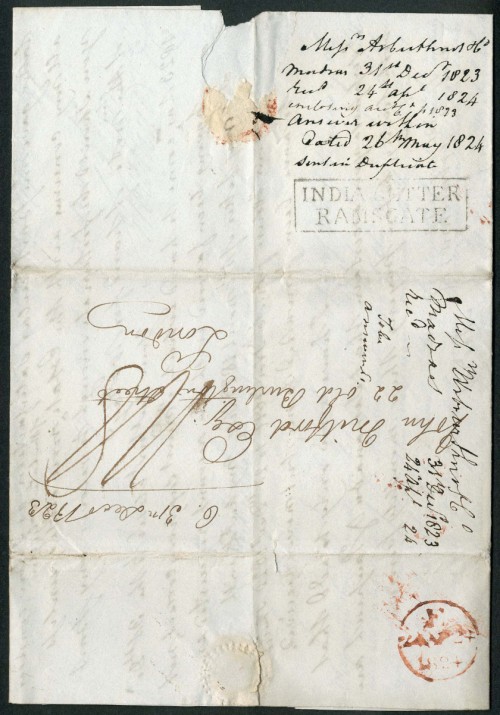 Mess.rs Arbuthnot & Co
Madras 31st Decr 1823
recd 24th apl 1824
enclosing 1823
Answer within
Dated 26th May 1824
Sent in Duplicate
INDIA LETTER
RAMSGATE
Mess.rs Arbuthnot & Co
Madras 31st Decr 1823
recd 24 apl 24
To be
answered
John Mitford Esq
22 Old Burlington Street
London
31 Decr 1823
1824